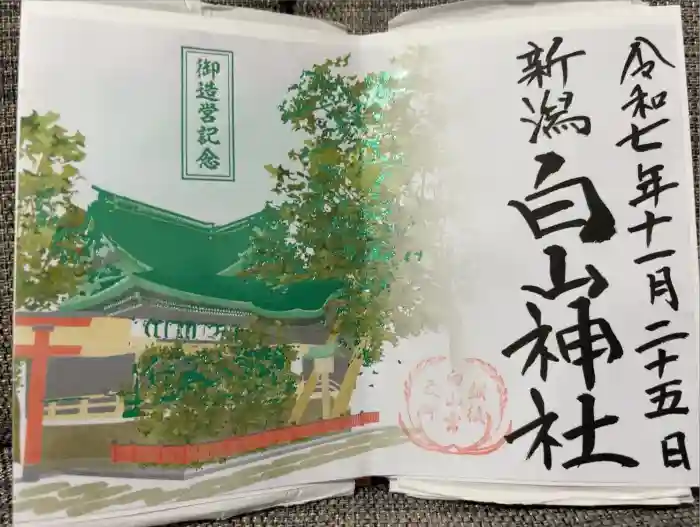 令和七年十一月二十五日
新潟
白山神社
御造営記念